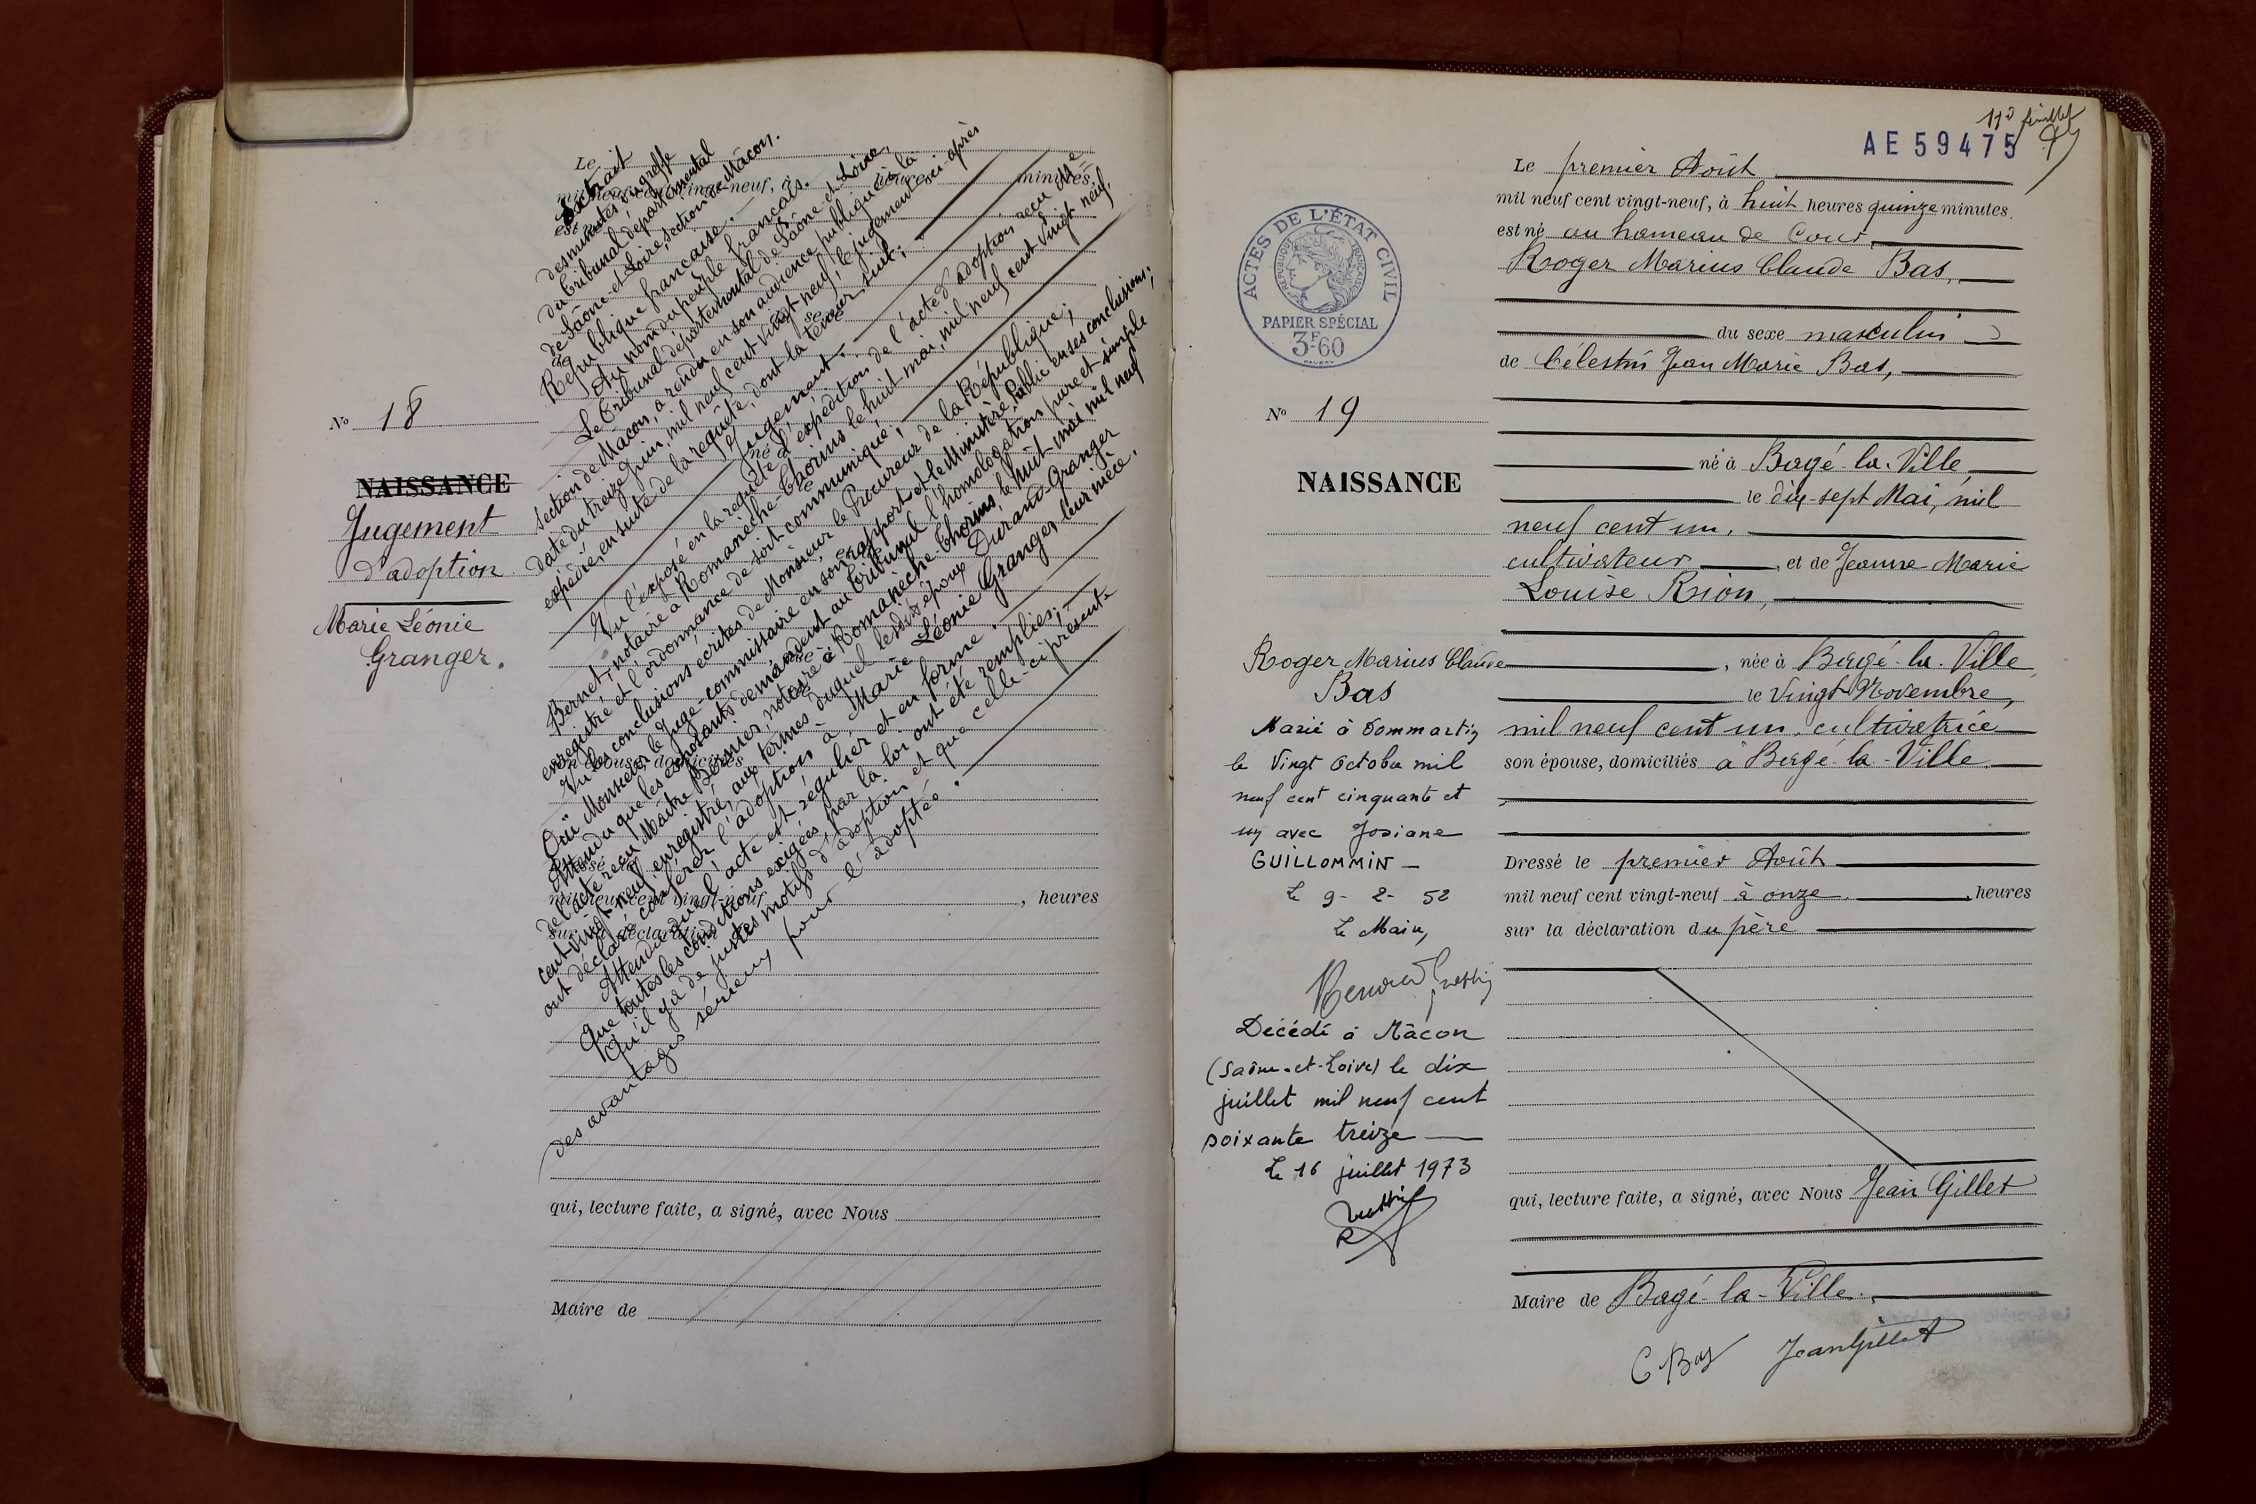 N° 18
NAISSANCE
Jugement
d'adoption
Marie Léonie
Granger.
Le
mil neuf cent vingt-neuf, à heures minutes,
est né
du sexe
né à
née à
le
son épouse, domiciliés
Dressé le
mil neuf cent vingt-neuf , heures
sur la déclaration
Extrait
des minutes du greffe
du Tribunal départemental
de Saône-et-Loire, section de Mâcon.
République française.
Au nom du peuple français.
Le Tribunal départemental de Saône-et-Loire,
section de Mâcon, a rendu en son audience publique à la
date du treize Juin, mil neuf cent vingt neuf, le jugement ci-après
expédié, ensuite de la requête, dont la teneur suit:
Jugement.
Vu l'exposé en la requête, l'expédition de l'acte d'adoption reçu Me
Bernet, notaire à Romanèche-Thorins le huit mai, mil neuf cent vingt neuf,
enregistré et l'ordonnance de soit communiqué;
Vu les conclusions écrites de Monsieur le Procureur de la République;
Ouï Monsieur le Juge-commissaire en son rapport et le Ministère Public en ses conclusions;
Attendu que les exposants demandent au Tribunal l'homologation pure et simple
de l'acte reçu Maître Bernet, notaire à Romanèche-Thorins le huit mai mil neuf
cent vingt-neuf, enregistré, aux termes duquel les dits époux Durand-Granger
ont déclaré conférer l'adoption à Marie Léonie Granger, leur nièce.
Attendu que l'acte est régulier et en forme.
Que toutes les conditions exigées par la loi ont été remplies;
Qu'il y a de justes motifs d'adoption et que celle-ci présente
des avantages sérieux pour l'adoptée.
qui, lecture faite, a signé, avec Nous
Maire de
feuillet
AE 59475
ACTES DE L'ÉTAT CIVIL
RÉPUBLIQUE FRANÇAISE
PAPIER SPÉCIAL
3F60
N° 19
NAISSANCE
Roger Marius Claude
Bas
Marié à Dommartin
le vingt octobre mil
neuf cent cinquante et
un avec Josiane
GUILLOMMIN -
Le 9- 2- 52
Le Maire,
Décédé à Mâcon
(Saône-et-Loire) le dix
juillet mil neuf cent
soixante treize
Le 16 juillet 1973
Le premier Août
mil neuf cent vingt-neuf, à huit heures quinze minutes.
est né au hameau de Cour
Roger Marius Claude Bas,
du sexe masculin
de Célestin Jean Marie Bas,
né à Bagé-la-Ville
le dix-sept Mai, mil
neuf cent un,
cultivateur, et de Jeanne Marie
Louise Rion,
, née à Bagé-la-Ville,
le vingt Novembre,
mil neuf cent un, cultivatrice
son épouse, domiciliés à Bagé-la-Ville
Dressé le premier Août
mil neuf cent vingt-neuf à onze, heures
sur la déclaration du père
qui, lecture faite, a signé, avec Nous Jean Gillet
Maire de Bagé-la-Ville.
C Bas Jean Gillet